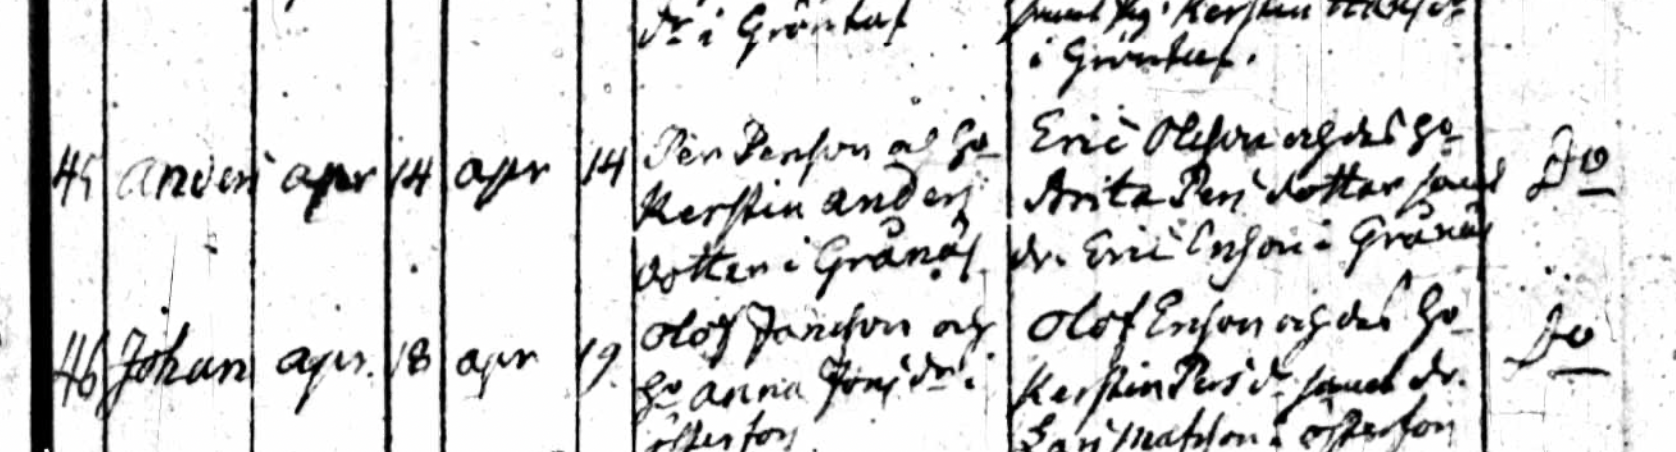 dr i Gröntuf
samt pig. Kerstin
i Gröntuf.
45 anders apr 14 apr 14 Per Person och ho
Kerstin anders
dotter i Grånäs
Eric Olsson och des ho
Anita Pers dotter samt
dr. Eric Ersson i Grånäs
Do
46 Johan apr. 18 apr 19. Olof Jonsson och
ho anna Jons dr i
österfors
Olof Ersson och des ho
Kerstin Pers dr samt dr.
Lars Matsson i österfors
Do